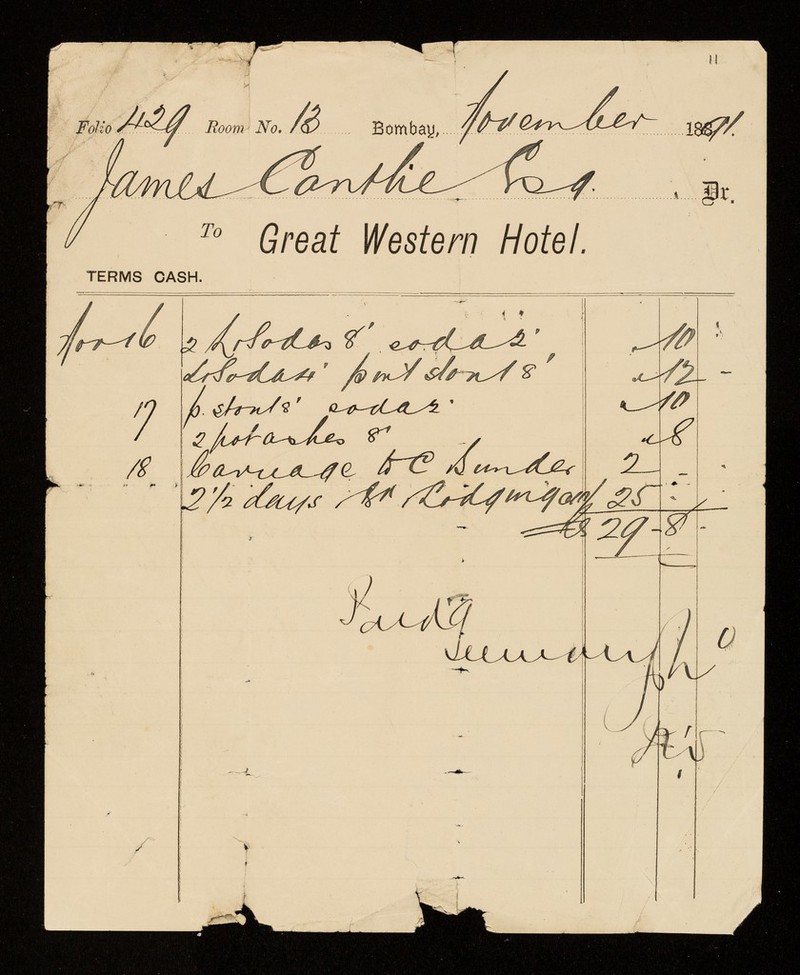 11
Folio 429 Room No. 13 Bombay, November 1891.
James Cantlie Esq. Dr.
To Great Western Hotel.
TERMS CASH.
Nov 16 2 Lr Sodas 8' soda 2' " 10
Lr Soda 4' pint stout 8' " 12 -
17 p. stout 8' soda 2' " 10
2 potashes 8' " 8
18 Carriage to C Bunder 2 - -
2 1/2 days Bd Lodging 25 -
Rs 29 - 8 -
Paid